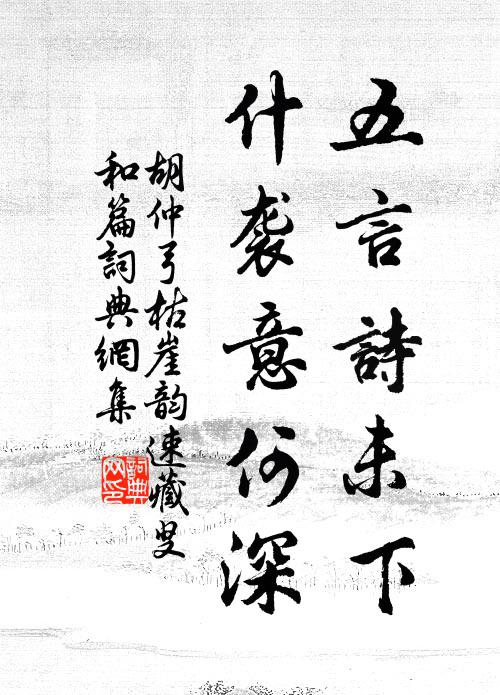 五言詩未下
什袭意何深
胡仲弓枯崖韵速藏叟
和篇詞典網集
詞典网印